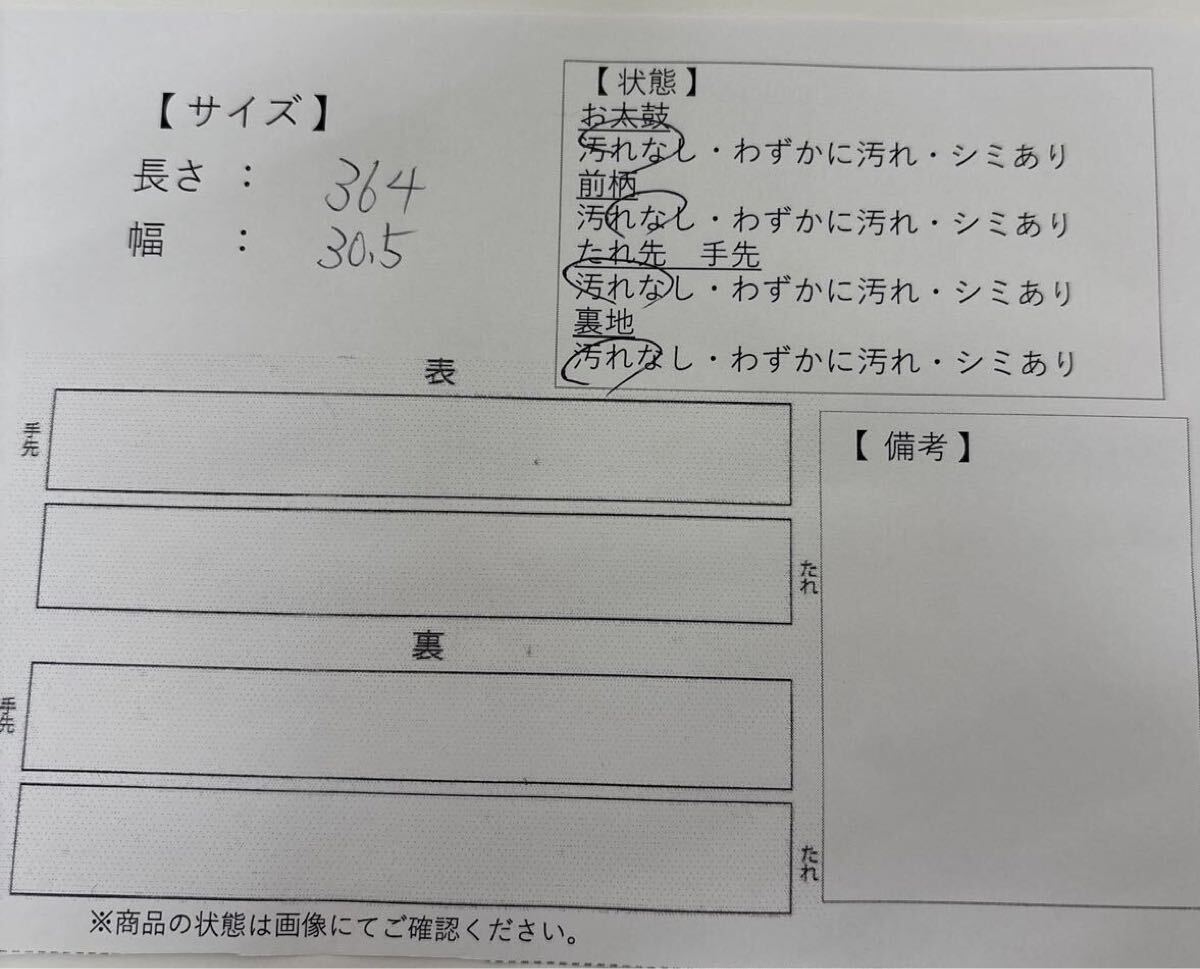 【 サイズ 】
長さ : 364
幅 : 30.5
【 状態 】
お太鼓
汚れなし・わずかに汚れ・シミあり
前柄
汚れなし・わずかに汚れ・シミあり
たれ先 手先
汚れなし・わずかに汚れ・シミあり
裏地
汚れなし・わずかに汚れ・シミあり
表
手先
たれ
裏
手先
たれ
【 備考 】
※商品の状態は画像にてご確認ください。